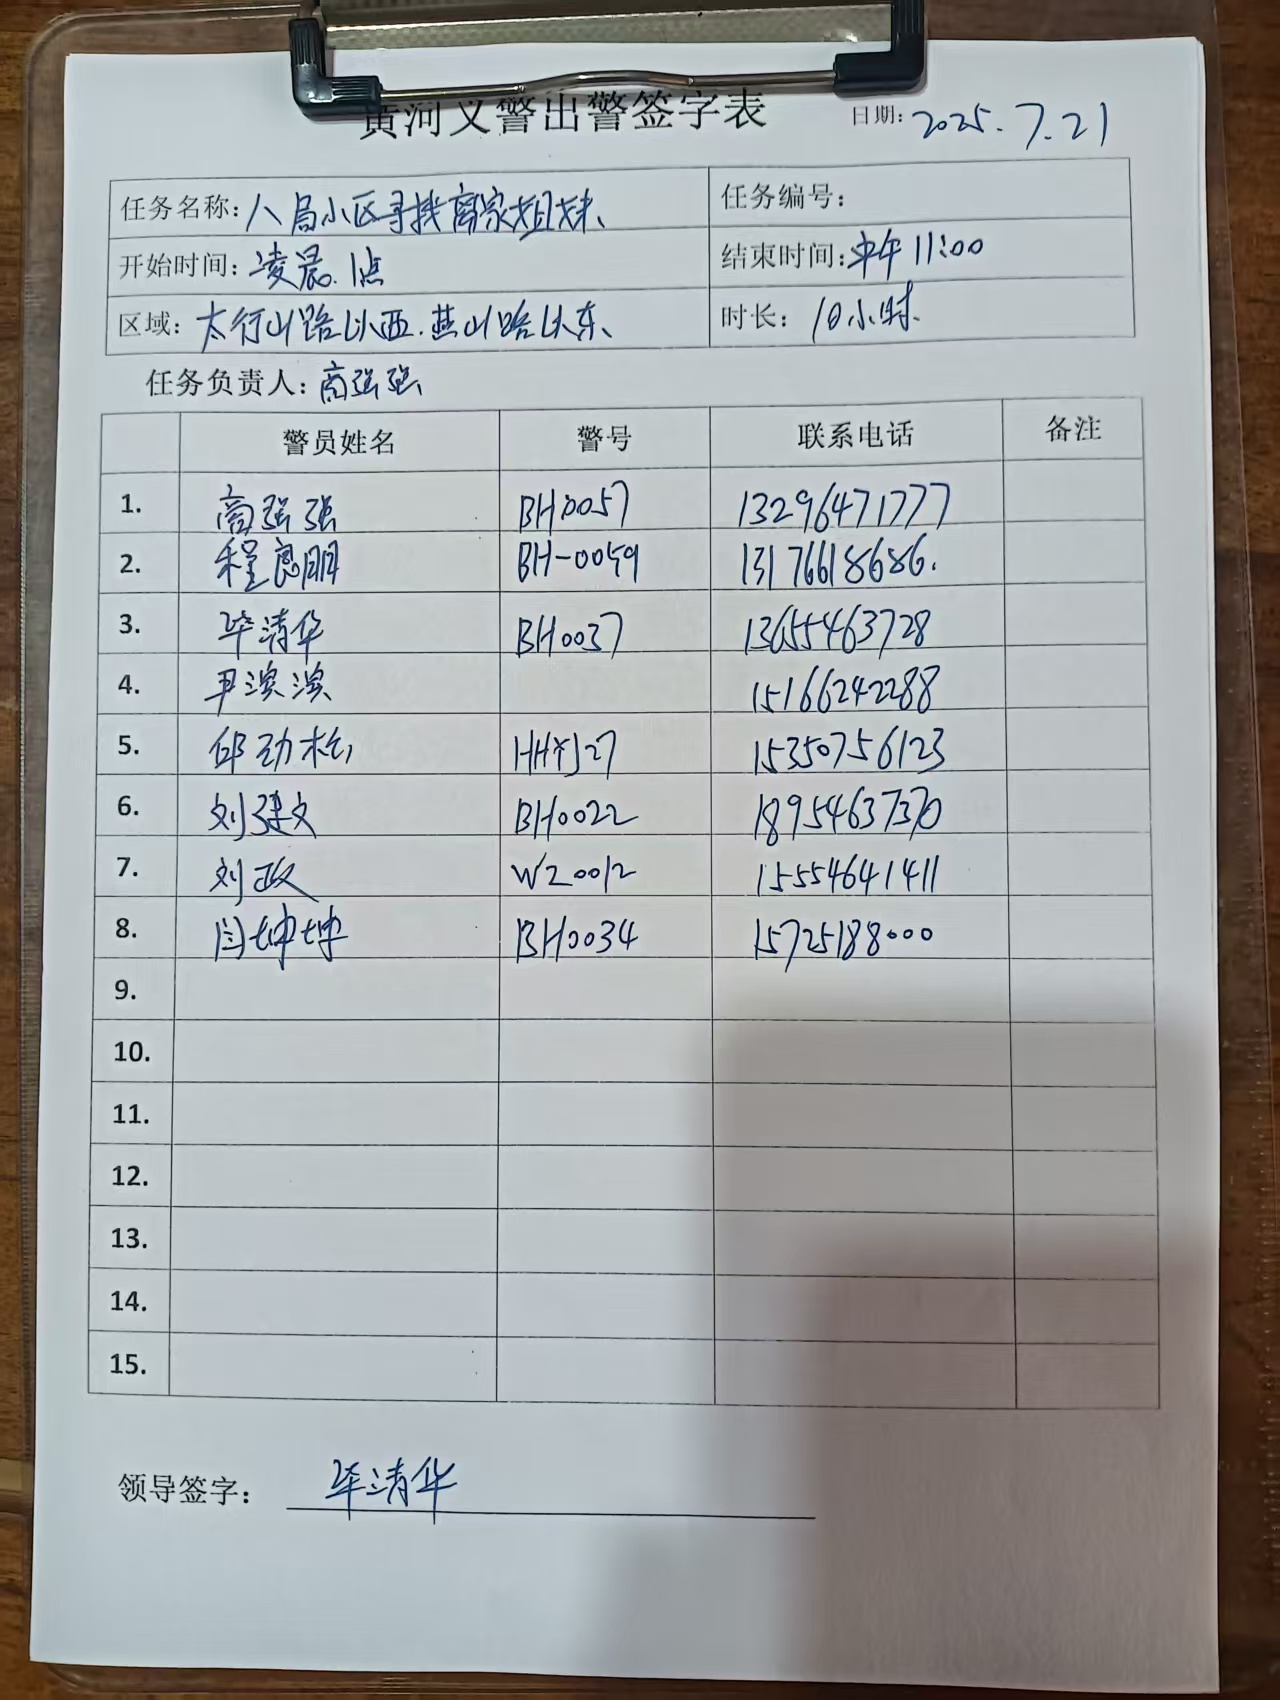 黄河义警出警签字表 日期: 2025.7.21
任务名称: 八局小区寻找离家姐妹 任务编号:
开始时间: 凌晨1点 结束时间: 中午11:00
区域: 太行山路以西.燕山路以东 时长: 10小时
任务负责人: 高强强
警员姓名 警号 联系电话 备注
1. 高强强 BH0057 13296471777
2. 程良朋 BH-0059 13176618686.
3. 毕清华 BH0037 13655463728
4. 尹滨滨 15166242288
5. 邱劲松 HHYJ27 15350756123
6. 刘建文 BH0022 18954637370
7. 刘政 WZ0012 15554641411
8. 闫坤坤 BH0034 15725188000
9.
10.
11.
12.
13.
14.
15.
领导签字: 毕清华